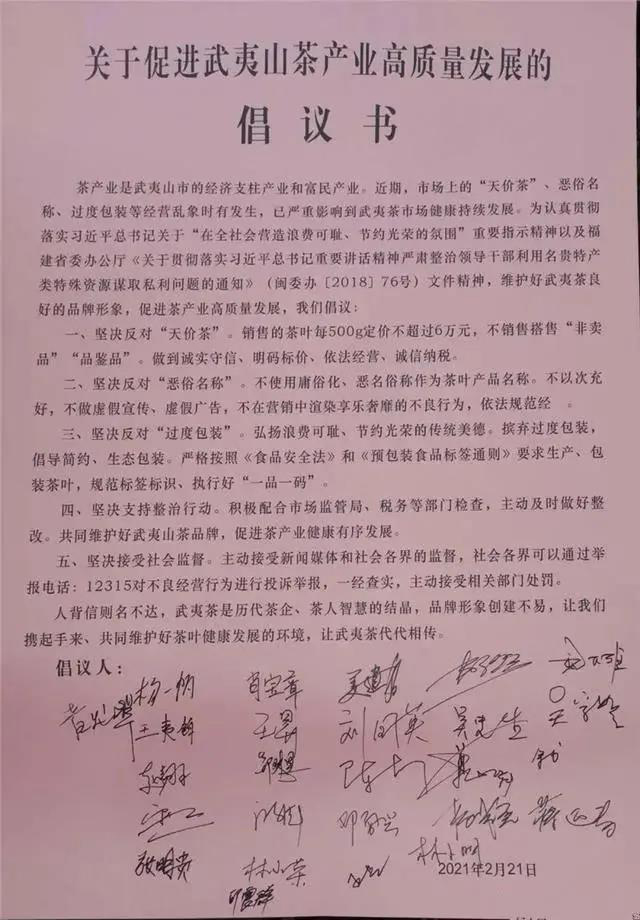 关于促进武夷山茶产业高质量发展的
倡议书
茶产业是武夷山市的经济支柱产业和富民产业。近期，市场上的“天价茶”、恶俗名
称、过度包装等经营乱象时有发生，已严重影响到武夷茶市场健康持续发展。为认真贯彻
落实习近平总书记关于“在全社会营造浪费可耻、节约光荣的氛围”重要指示精神以及福
建省委办公厅《关于贯彻落实习近平总书记重要讲话精神严肃整治领导干部利用名贵特产
类特殊资源谋取私利问题的通知》（闽委办［2018］76号）文件精神，维护好武夷茶良
好的品牌形象，促进茶产业高质量发展，我们倡议：
一、坚决反对“天价茶”。销售的茶叶每500g定价不超过6万元，不销售搭售“非卖
品”“品鉴品”。做到诚实守信、明码标价、依法经营、诚信纳税。
二、坚决反对“恶俗名称”。不使用庸俗化、恶名俗称作为茶叶产品名称。不以次充
好，不做虚假宣传、虚假广告，不在营销中渲染享乐奢靡的不良行为，依法规范经 。
三、坚决反对“过度包装”。弘扬浪费可耻、节约光荣的传统美德。摈弃过度包装，
倡导简约、生态包装。严格按照《食品安全法》和《预包装食品标签通则》要求生产、包
装茶叶，规范标签标识、执行好“一品一码”。
四、坚决支持整治行动。积极配合市场监管局、税务等部门检查，主动及时做好整
改。共同维护好武夷山茶品牌，促进茶产业健康有序发展。
五、坚决接受社会监督。主动接受新闻媒体和社会各界的监督，社会各界可以通过举
报电话：12315对不良经营行为进行投诉举报，一经查实，主动接受相关部门处罚。
人背信则名不达，武夷茶是历代茶企、茶人智慧的结晶，品牌形象创建不易，让我们
携起手来、共同维护好茶叶健康发展的环境，让武夷茶代代相传。
倡议人：
肖宝章
刘国英
林小荣
2021年2月21日